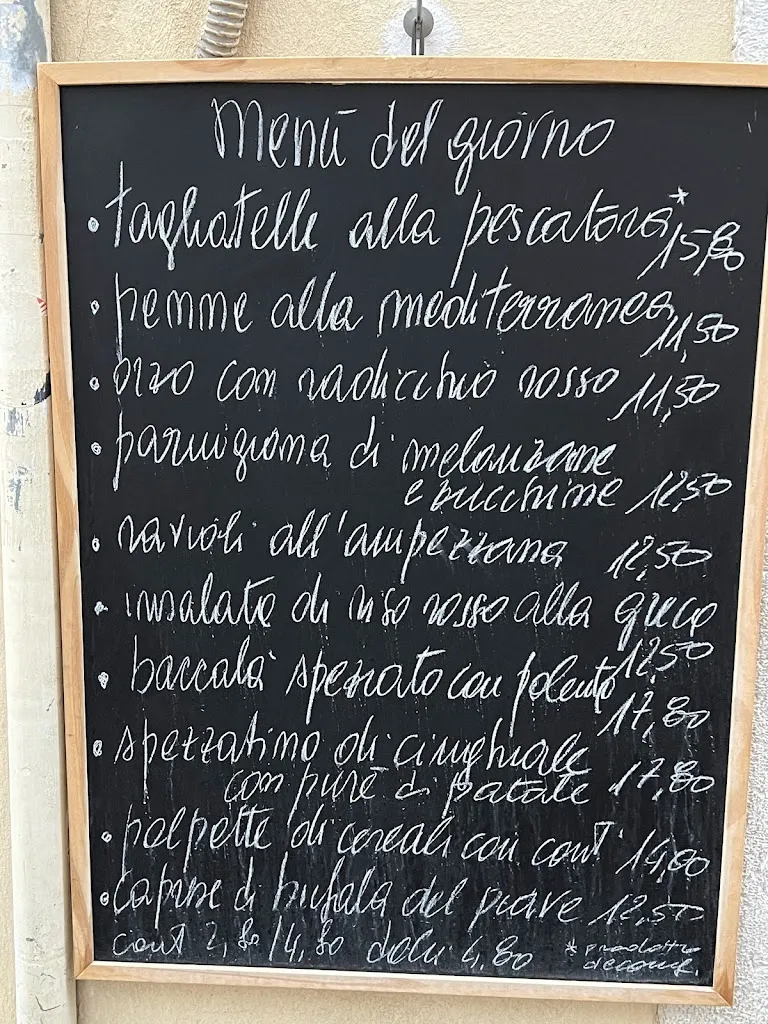 Menù del giorno
• tagliatelle alla pescatora* 15,80
• penne alla mediterranea 11,50
• orzo con radicchio rosso 11,50
• parmigiana di melanzane
e zucchine 12,50
• ravioli all'ampezzana 12,50
• insalata di riso rosso alla greca
12,50
• baccalà spezzato con polenta
17,80
• spezzatino di cinghiale
con purè di patate 17,80
• polpette di cereali con cont. 14,00
• caprese di bufala del piave 12,50
cont 2,80/4,80 dolci 4,80 * prodotto